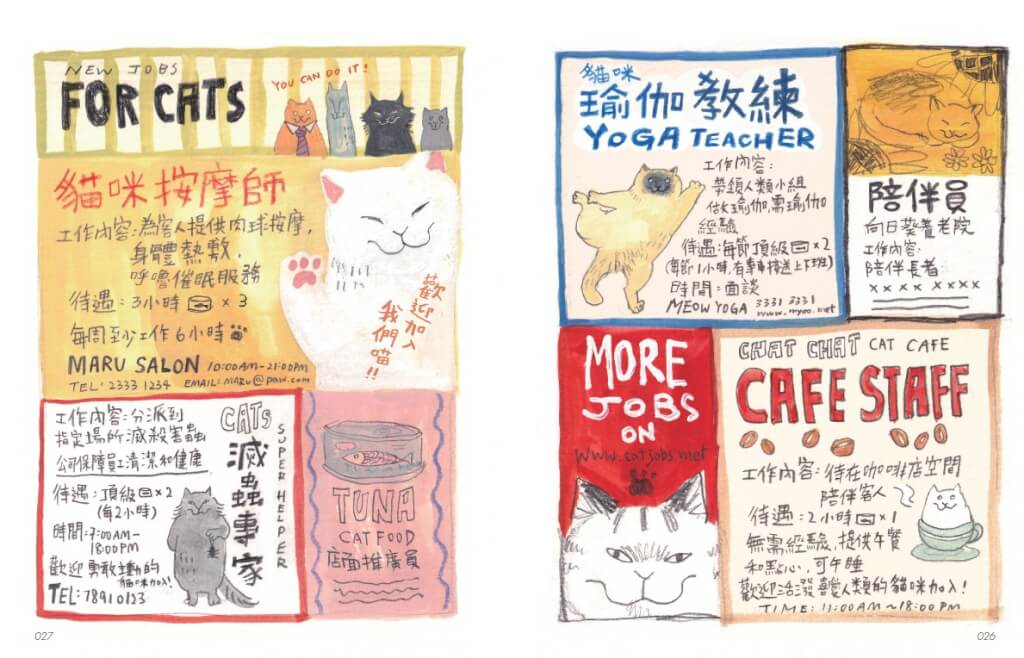 NEW JOBS
FOR CATS
YOU CAN DO IT!
貓咪按摩師
工作內容:為客人提供肉球按摩,
身體熱敷,
呼嚕催眠服務
待遇:3小時 × 3
每周至少工作6小時
MARU SALON 10:00AM-21:00PM
TEL: 2333 1234 EMAIL: MARU@PAW.COM
歡迎加入
我們喵!!
工作內容:分派到
指定場所滅殺害蟲
公司保障員工清潔和健康
待遇:頂級 ×2
(每2小時)
時間:7:00AM-
18:00PM
歡迎勇敢主動的
貓咪加入!
TEL:78910123
CATS
滅蟲專家
SUPER HELPER
TUNA
CAT FOOD
店面推廣員
027
貓咪
瑜伽教練
YOGA TEACHER
工作內容:
帶領人類小組
做瑜伽,需瑜伽
經驗
待遇:每節頂級 ×2
(每節1小時,有專車接送上下班)
時間:面談
MEOW YOGA 3331 3331
www.myoo.net
陪伴員
向日葵養老院
工作內容:
陪伴長者
×××× ××××
MORE
JOBS
ON
www.catjobs.net
CHAT CHAT CAT CAFE
CAFE STAFF
工作內容:待在咖啡店空間
陪伴客人
待遇:2小時 ×1
無需經驗,提供午餐
和點心,可午睡
歡迎活潑喜歡人類的貓咪加入!
TIME: 11:00AM~18:00PM
026